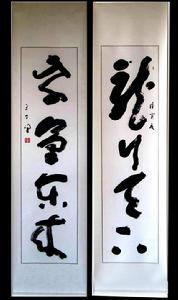 龍行天下
紫氣東來